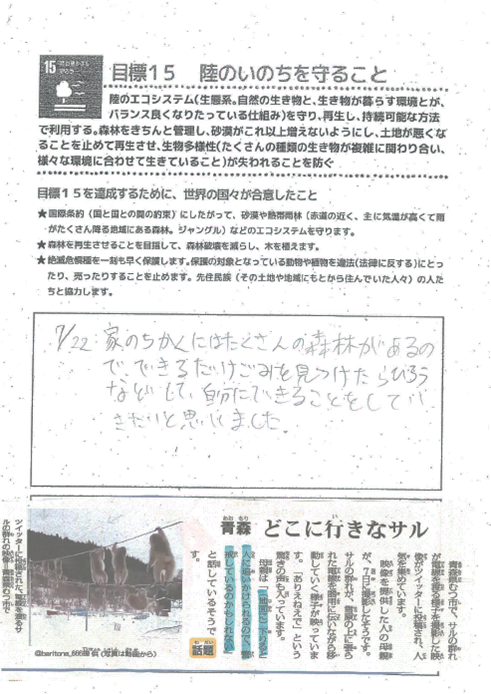 15
目標15 陸のいのちを守ること
陸のエコシステム(生態系。自然の生き物と、生き物が暮らす環境とが、
バランス良くなりたっている仕組み)を守り、再生し、持続可能な方法
で利用する。森林をきちんと管理し、砂漠がこれ以上増えないようにし、土地が悪くな
ることを止めて再生させ、生物多様性(たくさんの種類の生き物が複雑に関わり合い、
様々な環境に合わせて生きていること)が失われることを防ぐ
目標15を達成するために、世界の国々が合意したこと
★国際条約(国と国との間の約束)にしたがって、砂漠や熱帯雨林(赤道の近く、主に気温が高くて雨
がたくさん降る地域にある森林。ジャングル)などのエコシステムを守ります。
★森林を再生させることを目指して、森林破壊を減らし、木を植えます。
★絶滅危惧種を一刻も早く保護します。保護の対象となっている動物や植物を違法(法律に反する)にとっ
たり、売ったりすることを止めます。先住民族(その土地や地域にもとから住んでいた人々)の人た
ちと協力します。
7/22 家のちかくにはたくさんの森林があるの
で、できるだけごみを見つけたらひろう
などして、自分にできることをしてい
きたいと思いました。
青森 どこに行きなサル
青森県むつ市で、サルの群れ
が電線を渡る様子を撮影した映
像がツイッターに投稿され、人
気を集めています。
映像を提供した人の母親
が、7日に撮影したそうです。
サルの群れが、雪原の上に張ら
れた電線を器用に伝いながら移
動していく様子が映っていま
す。「ありえねえで」という
驚きの声も入っています。
母親は「地面に下りると
人に追いかけられるので、警
戒しているのかもしれない」
と話しているそうで
す。
話題
ツイッターに投稿された、電線を渡るサ
ルの群れの映像=青森県むつ市で
(写真は動画から)